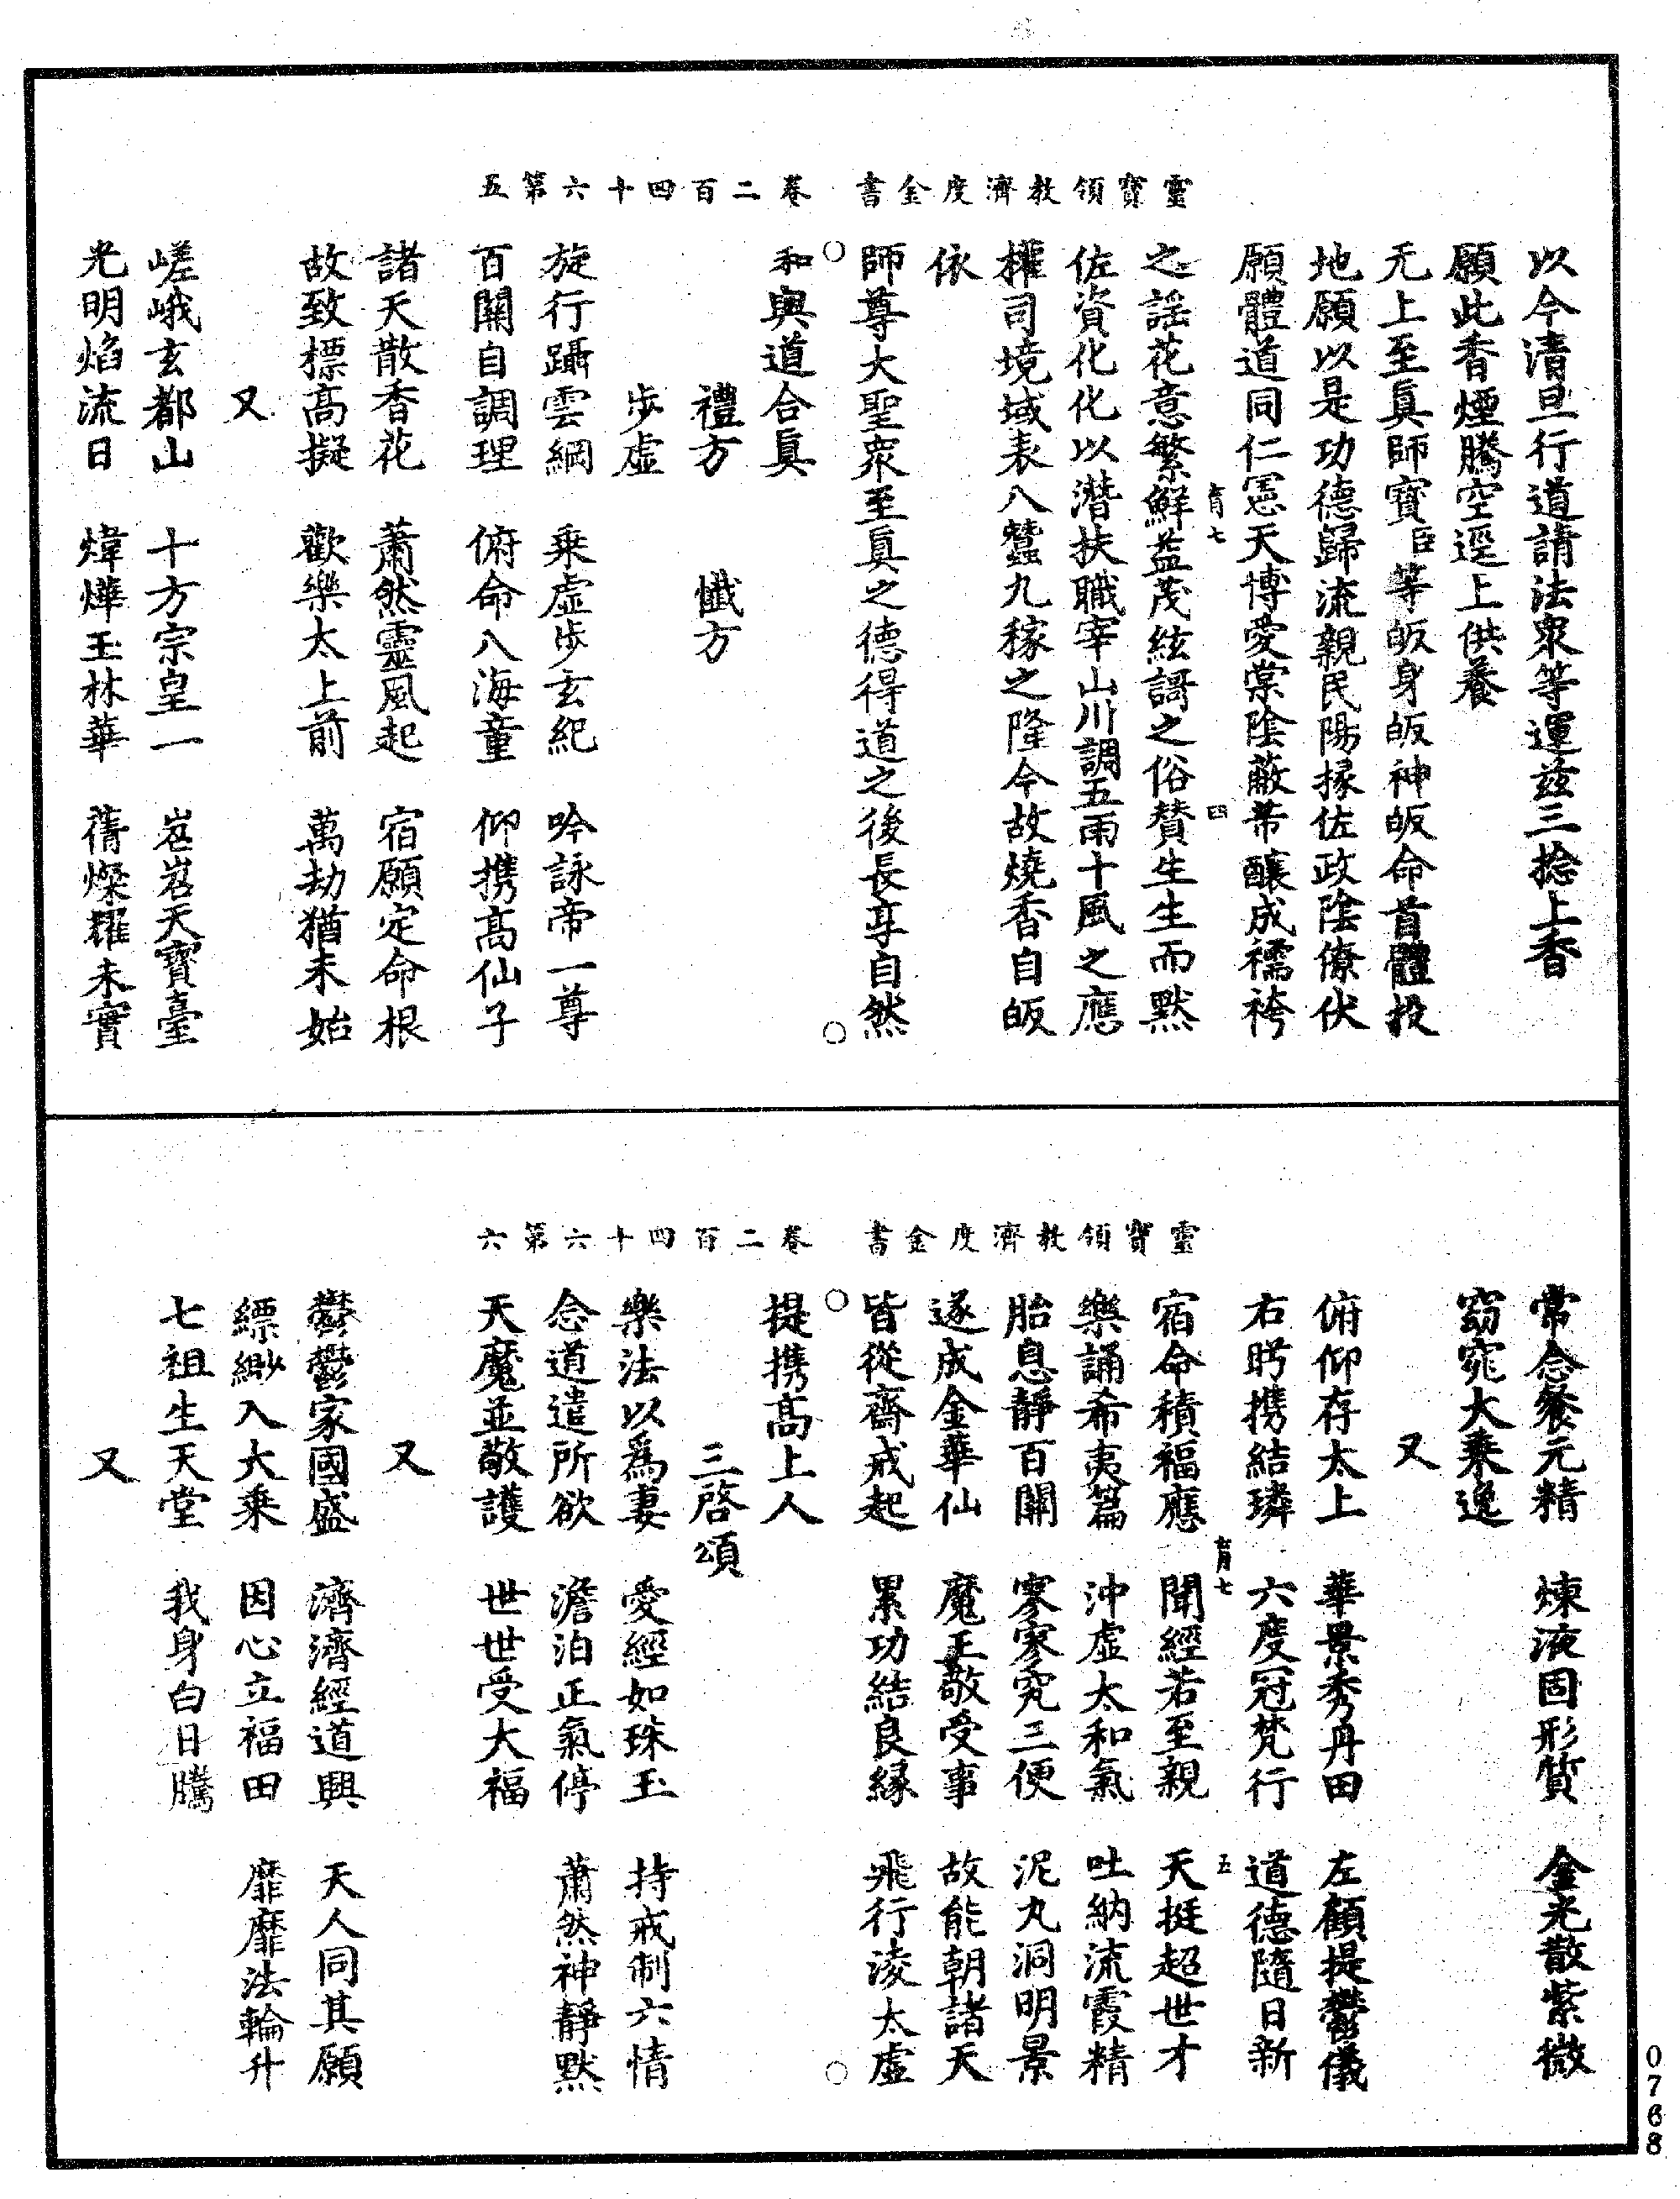 靈寶領教濟度金書　卷二百四十六第五
以今清旦行道請法衆等運茲三捻上香
願此香煙騰空逕上供養
无上至眞師寶臣等皈身皈神皈命首體投
地願以是功德歸流親民陽掾佐政陰僚伏
願體道同仁憲天博愛棠陰蔽芾釀成襦袴
之謡花意繁鮮益茂絃謌之俗賛生生而黙
佐資化化以潛扶職宰山川調五雨十風之應
權司境域表八蠶九稼之隆今故燒香自皈
依
師尊大聖衆至眞之德得道之後長享自然
和與道合眞
禮方　懺方
步虛
旋行躡雲綱　乘虛步玄紀　吟詠帝一尊
百關自調理　俯命八海童　仰携高仙子
諸天散香花　蕭然靈風起　宿願定命根
故致標高擬　歡樂太上前　萬劫猶未始
又
嵯峨玄都山　十方宗皇一　岧岧天寶臺
光明焰流日　煒燁玉林華　蒨燦耀未實
育七　四
靈寶領教濟度金書　卷二百四十六第六
常念餐元精　煉液固形質　金光散紫微
窈窕大乘逸
又
俯仰存太上　華景秀丹田　左顧提鬱儀
右眄携結璘　六度冠梵行　道德隨日新
宿命積福應　聞經若至親　天挺超世才
樂誦希夷篇　沖虛太和氣　吐納流霞精
胎息靜百關　寥寥究三便　泥丸洞明景
遂成金華仙　魔王敬受事　故能朝諸天
皆從齋戒起　累功結良緣　飛行凌太虛
提携高上人
三啓頌
樂法以爲妻　愛經如珠玉　持戒制六情
念道遣所欲　澹泊正氣停　蕭然神靜黙
天魔並敬護　世世受大福
又
鬱鬱家國盛　濟濟經道興　天人同其願
縹緲入大乘　因心立福田　靡靡法輪升
七祖生天堂　我身白日騰
又
育七　五
0768